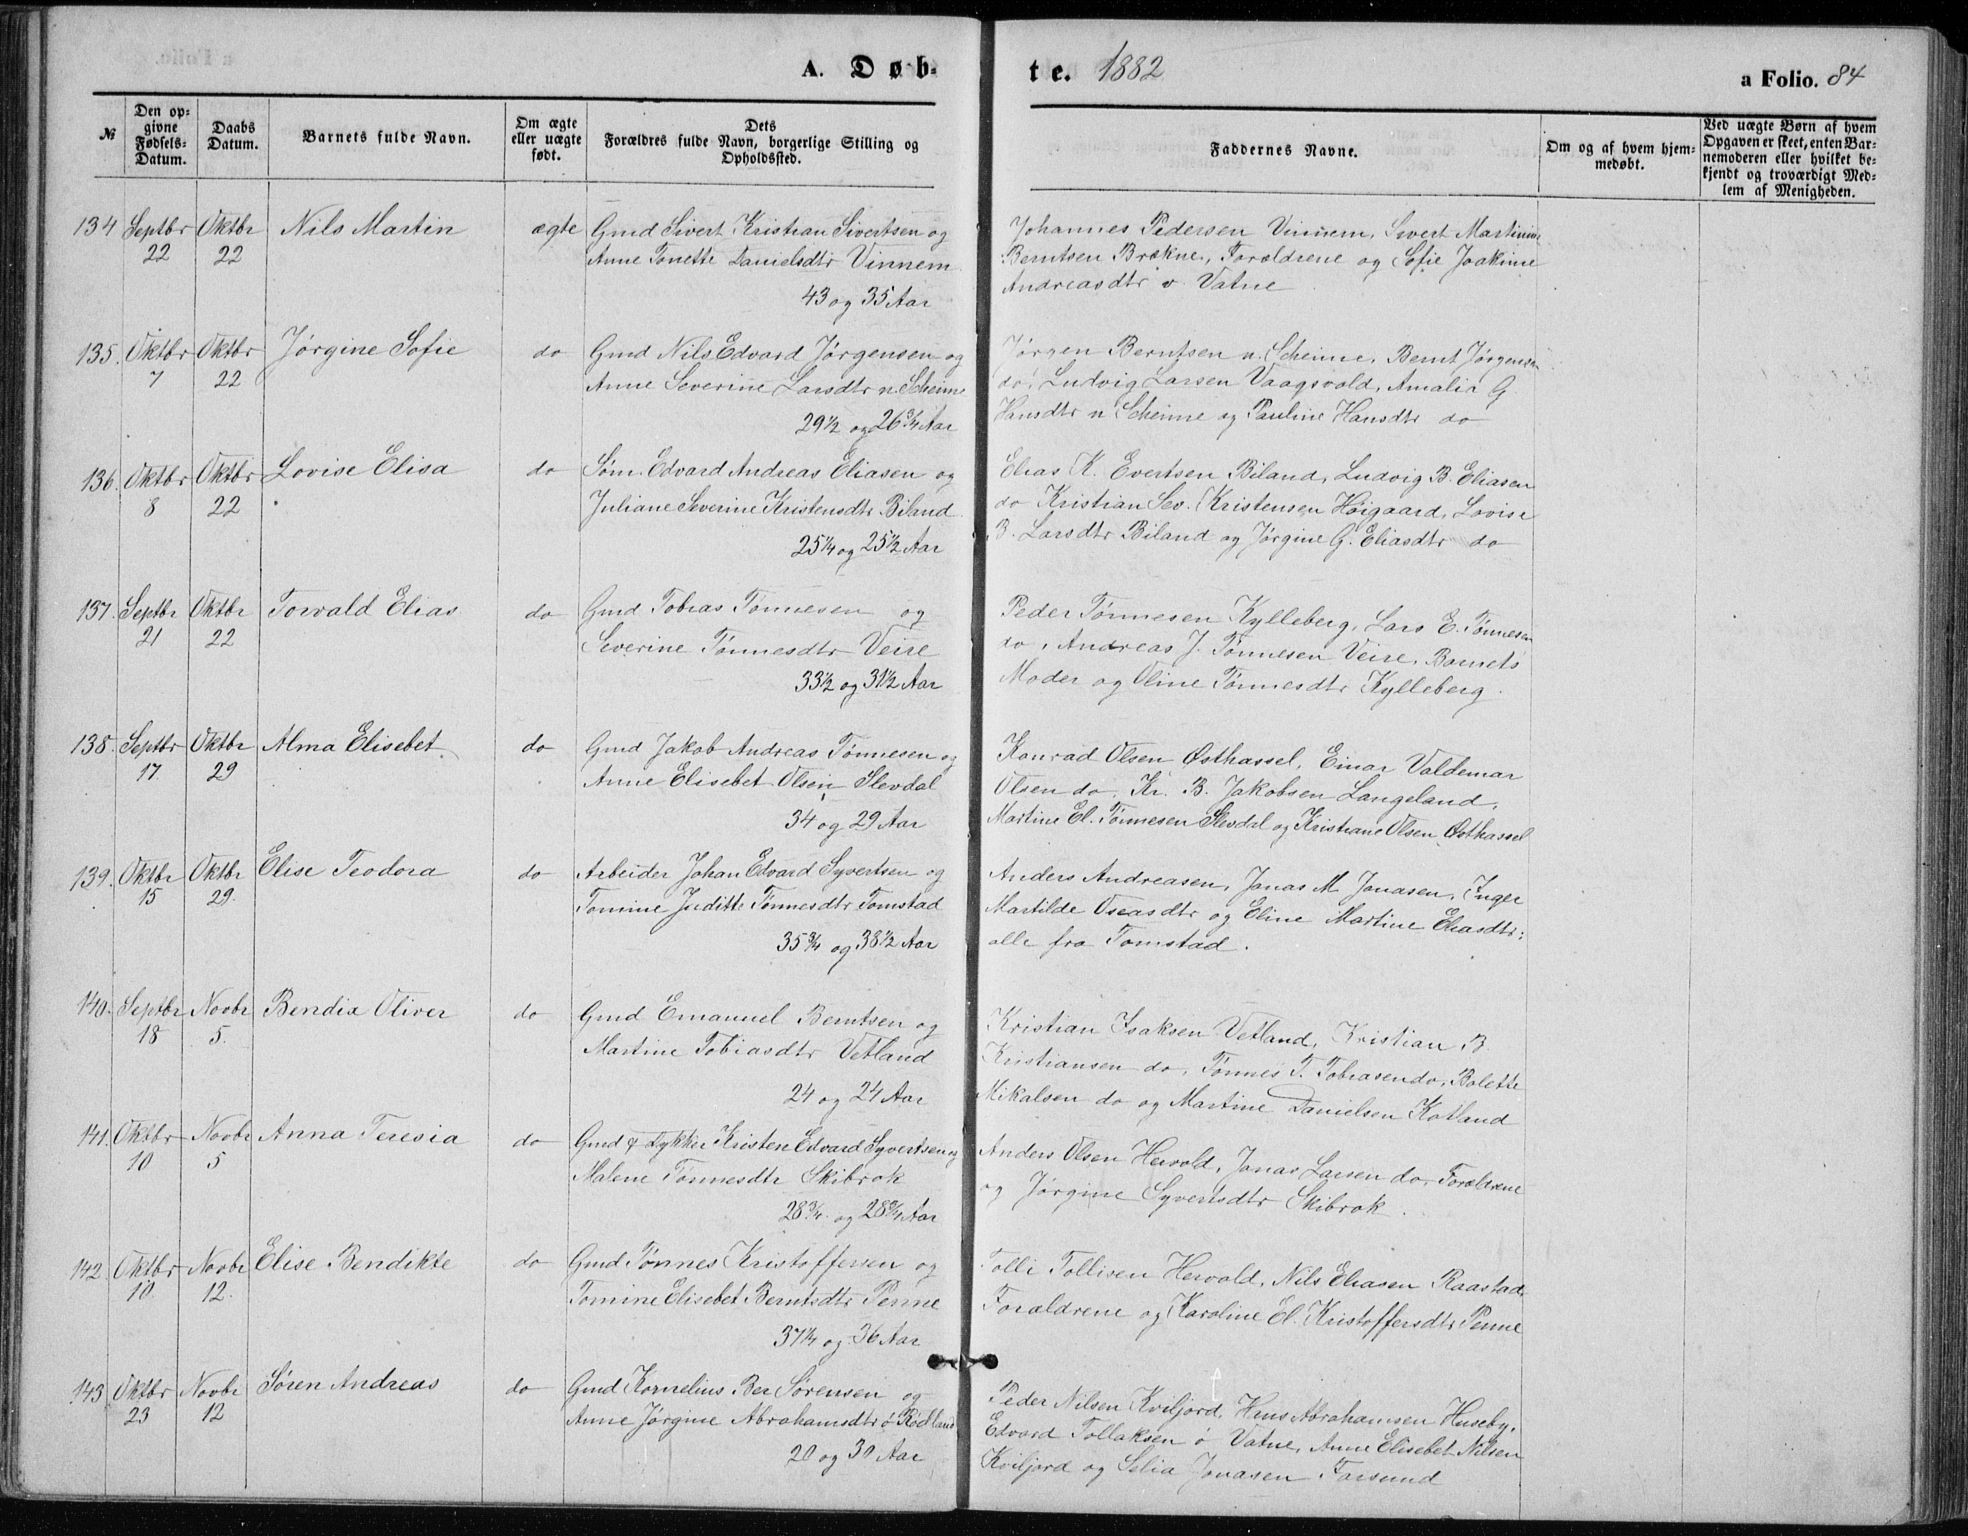 A. Døb-
te. 1882
a Folio. 84
№
Den op-
givne
Fødsels-
Datum.
Daabs
Datum.
Barnets fulde Navn.
Om ægte
eller uægte
født.
Dets
Forældres fulde Navn, borgerlige Stilling og
Opholdssted.
Faddernes Navne.
Om og af hvem hjem-
medøbt.
Ved uægte Børn af hvem
Opgaven er skeet, enten Bar-
nemoderen eller hvilket be-
kjendt og troværdigt Med-
lem af Menigheden.
134 Septbr Oktbr Nils Martin ægte Gmd Sivert Kristian Sivertsen og
22 22 Anne Tonette Danielsdtr Vinnem
43 og 35 Aar
Johannes Pedersen Vinnem, Sivert Martinius
Berntsen Brækne, Forældrene og Sofie Joakime
Andreasdtr v. Vatne
135. Oktbr Oktbr Jørgine Sofie do Gmd Nils Edvard Jørgensen og
7 22 Anne Severine Larsdtr n. Scheime
29½ og 26¾ Aar
Jørgen Berntsen n. Scheime, Bernt Jørgensen
do, Ludvig Larsen Vaagsvold, Amalia G.
Hansdtr n Scheime og Pauline Hansdtr do
136. Oktbr Oktbr Lovise Elisa do Søm. Edvard Andreas Eliasen og
8 22 Juliane Severine Kristensdtr Biland
25¼ og 25½ Aar
Elias K. Evertsen Biland, Ludvig B. Eliasen
do Kristian Sev. Kristensen Høigaard, Lovise
B. Larsdtr Biland og Jørgine G. Eliasdtr do
137. Septbr Oktbr Torvald Elias do Gmd Tobias Tønnesen og
21 22 Severine Tønnesdtr Veire
33½ og 31½ Aar
Peder Tønnesen Kylleberg, Lars E. Tønnesen
do, Andreas J. Tønnesen Veire, Barnets
Moder og Oline Tønnesdtr Kylleberg.
138. Septbr Oktbr Alma Elisebet do Gmd Jakob Andreas Tønnesen og
17 29 Anne Elisebet Olsen Slevdal
34 og 29 Aar
Konrad Olsen Østhassel, Einar Valdemar
Olsen do, Kr. B. Jakobsen Langeland,
Martine El. Tønnesen Slevdal og Kristiane Olsen Østhassel
139. Oktbr Oktbr Elise Teodora do Arbeider Johan Edvard Syvertsen og
15 29. Tomine Juditte Tønnesdtr Tomstad
35¾ og 38½ Aar
Anders Andreasen, Jonas M. Jonasen, Inger
Martilde Oseasdtr og Eline Martine Eliasdtr:
alle fra Tomstad.
140. Septbr Novbr Bendix Oliver do Gmd Emanuel Berntsen og
18 5. Martine Tobiasdtr Vetland
24 og 24 Aar
Kristian Isaksen Vetland, Kristian B.
Kristiansen do, Tønnes T. Tobiasen do, Bolette
Mikalsen do og Martine Danielsen Kotland
141. Oktbr Novbr Anna Teresia do Gmd & Dykker Kristen Edvard Syvertsen og
10 5 Malene Tønnesdtr Skibrok
28¾ og 28¾ Aar
Anders Olsen Hervold, Jonas Larsen do, Forældrene
og Jørgine Syvertsdtr Skibrok.
142. Oktbr Novbr Elise Bendikte do Gmd Tønnes Kristoffersen og
10 12. Tomine Elisebet Berntsdtr Penne
37¼ og 36 Aar
Tolli Tollisen Hervold, Nils Eliasen Raastad,
Forældrene og Karoline El. Kristoffersdtr Penne
143 Oktbr Novbr Søren Andreas do Gmd Kornelius Ber Sørensen og
23 12 Anne Jørgine Abrahamsdtr ø Rødland
20 og 30 Aar
Peder Nilsen Kviljord, Hans Abrahamsen Huseby,
Edvard Tollaksen ø Vatne, Anne Elisebet Nilsen
Kviljord og Selia Jonasen Farsund